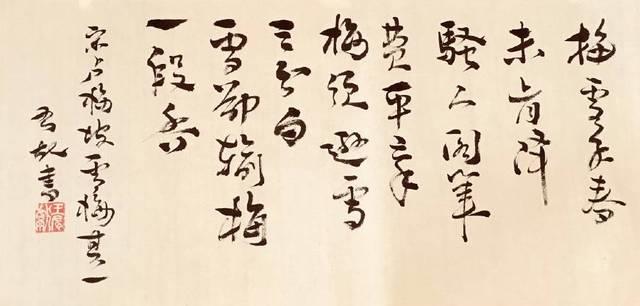 梅雪争春
未肯降
騷人阁筆
费平章
梅须遜雪
三分白
雪却输梅
一段香
宋卢梅坡雪梅其一
書